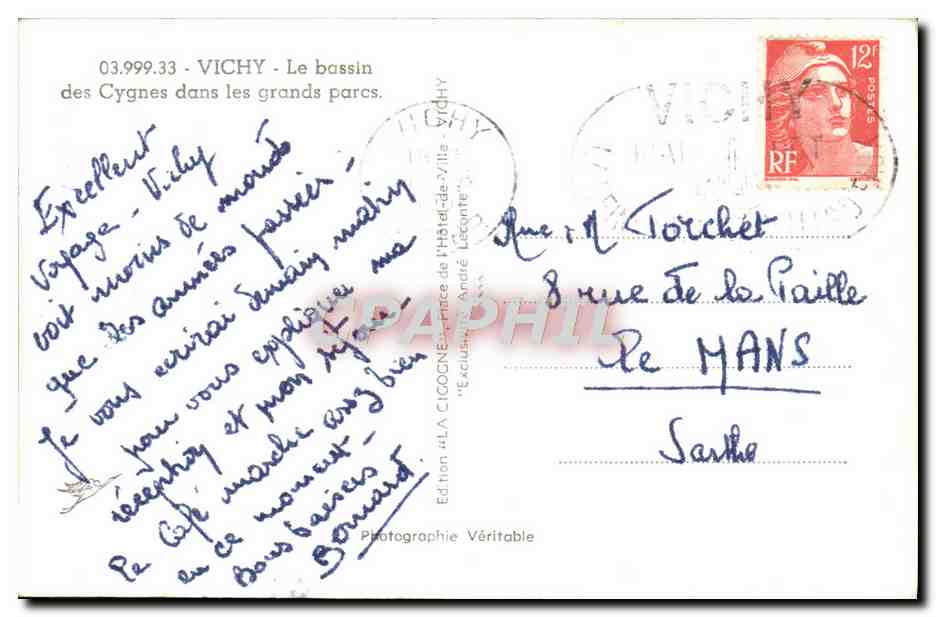 03.999.33 - VICHY - Le bassin
des Cygnes dans les grands parcs.
Excellent
voyage - Vichy
voit moins de monde
que les années passées -
Je vous écrirai demain matin
pour vous expliquer ma
réception et mon séjour -
Le Café marche assez bien
en ce moment -
Bons baisers
Bernard.
Edition "LA CIGOGNE", Place de l'Hôtel-de-Ville - VICHY
"Exclusivité André Leconte"
Photographie Véritable
CPAPHIL
VICHY
VICHY
12F
POSTES
RF
Mme & M Torchet
8 rue de la Paille
Le MANS
Sarthe